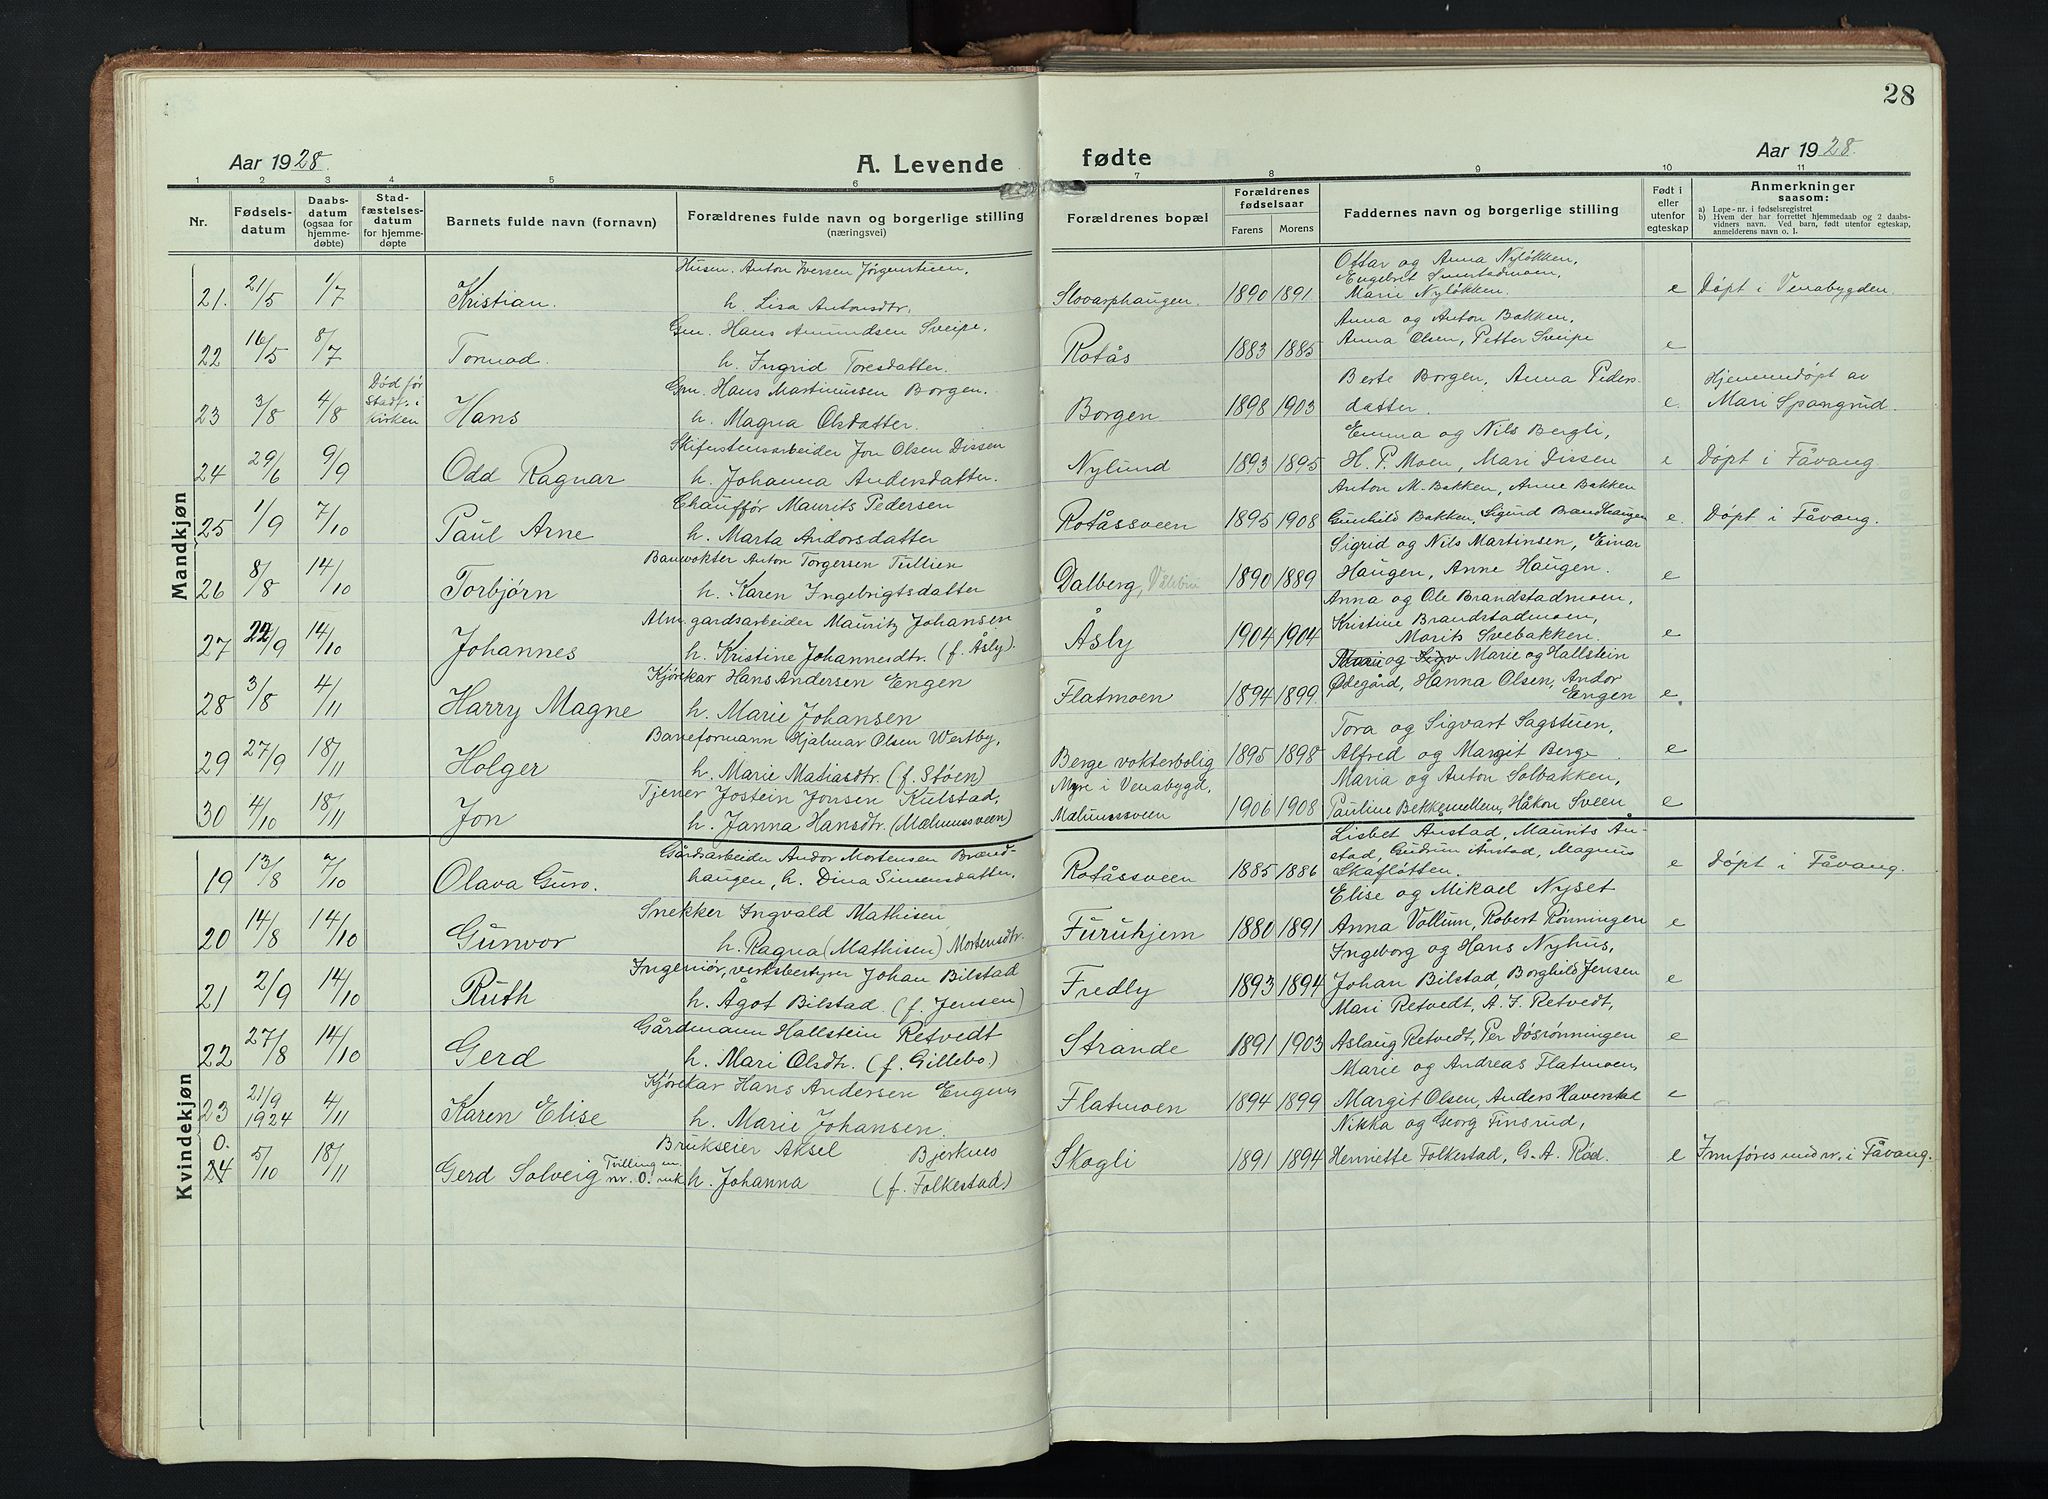 28
Aar 1928.
A. Levende
fødte
Aar 1928.
1 2 3 4 5 6 7 8 9 10 11
Nr.
Fødsels-
datum
Daabs-
datum
(ogsaa for
hjemme-
døbte)
Stad-
fæstelses-
datum
for hjemme-
døpte
Barnets fulde navn (fornavn)
Forældrenes fulde navn og borgerlige stilling
(næringsvei)
Forældrenes bopæl
Forældrenes
fødselsaar
Farens Morens
Faddernes navn og borgerlige stilling
Født i
eller
utenfor
egteskap
Anmerkninger
saasom:
a) Løpe-nr. i fødselsregistret
b) Hvem der har forrettet hjemmedaab og 2 daabs-
vidners navn. Ved barn, født utenfor egteskap,
anmelderens navn o. l.
Mandkjøn
Husm. Anton Iversen Jørgenstuen,
Ottar og Anna Nyløkken,
Engebret
21. 21/5 1/7 Kristian. h. Lisa Antonsdtr. 1890 1891 Marie Nyløkken. e Døpt i Venabygden.
Gm. Hans Amundsen Sveipe.
Anna og Anton Bakken,
22 16/5 8/7 Tormod. h. Ingrid Toresdatter. Rotås 1883 1885 Anna Olsen, Petter Sveipe e
Død før
Gm. Hans Martinussen Borgen.
Berte Borgen, Anna Peders-
Hjemmedøpt av
23 3/8 4/8 Stadf. i kirken Hans h. Magna Olsdatter. Borgen 1898 1903 datter. e. Mari Spangrud.
Skiferstensarbeider Jon Olsen Dissen
Emma og Nils Bergli,
24 29/6 9/9 Odd Ragnar h. Johanna Andersdatter. Nylund 1893 1895 H. P. Moen, Mari Dissen e Døpt i Fåvang.
Chauffør Maurits Pedersen
Anton M. Bakken, Anne Bakken
25 1/9 7/10 Paul Arne h. Marta Andorsdatter Rotåssveen 1895 1908 Gunhild Bakken, Sigurd Brandhaugen e. Døpt i Fåvang.
Banevokter Anton Torgersen Tullien
Sigrid og Nils Martinsen, Einar
26 8/8 14/10 Torbjørn h. Karen Ingebrigtsdatter Dalberg, 1890 1889 Haugen, Anne Haugen. e
Alm. gardsarbeider Mauritz Johansen
Anna og Ole Brandstadmoen,
Kristine Brandstadmoen,
27 22/9 14/10 Johannes h. Kristine Johannesdtr. (f. Åsly). Åsly 1904 1904 Marit Svebakken. e
Kjørekar Hans Andersen Engen
Marie og Hallstein
28 3/8 4/11 Harry Magne h. Marie Johansen Flatmoen 1894 1899. Ødegård, Hanna Olsen, Andor Engen e
Baneformann Hjalmar Olsen Westby,
Tora og Sigvart Sagstuen,
29 27/9 18/11 Holger h. Marie Matiasdtr. (f. Støen) Berge vokterbolig 1895 1898 Alfred og Margit Berge. e
Tjener Jostein Jonsen Kulstad,
Myre i Venabygd,
Maria og Anton Solbakken,
30 4/10 18/11 Jon h. Janna Hansdtr. (Mælumssveen) Mælumssveen 1906 1908 Pauline Bekkemellem, Håkon Sveen e
Kvindekjøn
Gårdsarbeider Andor Mortensen Brænd-
Lisbet Anstad, Maurits An-
stad, Gudrun Anstad, Magnus
19 13/8 7/10 Olava Guro. haugen, h. Dina Simensdatter, Rotåssveen 1885 1886 Skafløtten. e Døpt i Fåvang.
Snekker Ingvald Mathisen
Elise og Mikael Nyset
20 14/8 14/10 Gunvor h. Ragna (Mathisen) Mortensdtr. Furuhjem 1880 1891 Anna Vollum, Robert Rønningen e
Ingeniør, verksbestyrer Johan Bilstad
Ingeborg og Hans Nyhus,
21 2/9 14/10 Ruth h. Ågot Bilstad. (f. Jensen) Fredly 1893 1894 Johan Bilstad, Borghild Jensen e
Gårdmann Hallstein Retvedt
Mari Retvedt, A. J. Retvedt,
22 27/8 14/10 Gerd h. Mari Olsdtr. (f. Gillebo) Strande 1891 1903 Aslaug Retvedt, Per Døsrønningen e
Kjørekar Hans Andersen Engen,
Marie og Andreas Flatmoen,
23 21/9 1924 4/11 Karen Elise h. Marie Johansen. Flatmoen 1894 1899 Margit Olsen, Anders Haverstad e
Brukseier Aksel Bjerknes
Nikka og Georg Finsrud,
0. 24 5/10 18/11 Gerd Solveig Tvilling m. nr. 0. mk h. Johanna (f. Folkestad) Skogli 1891 1894 Henriette Folkestad, G. A. Rød. e Innføres und. nr. i Fåvang.